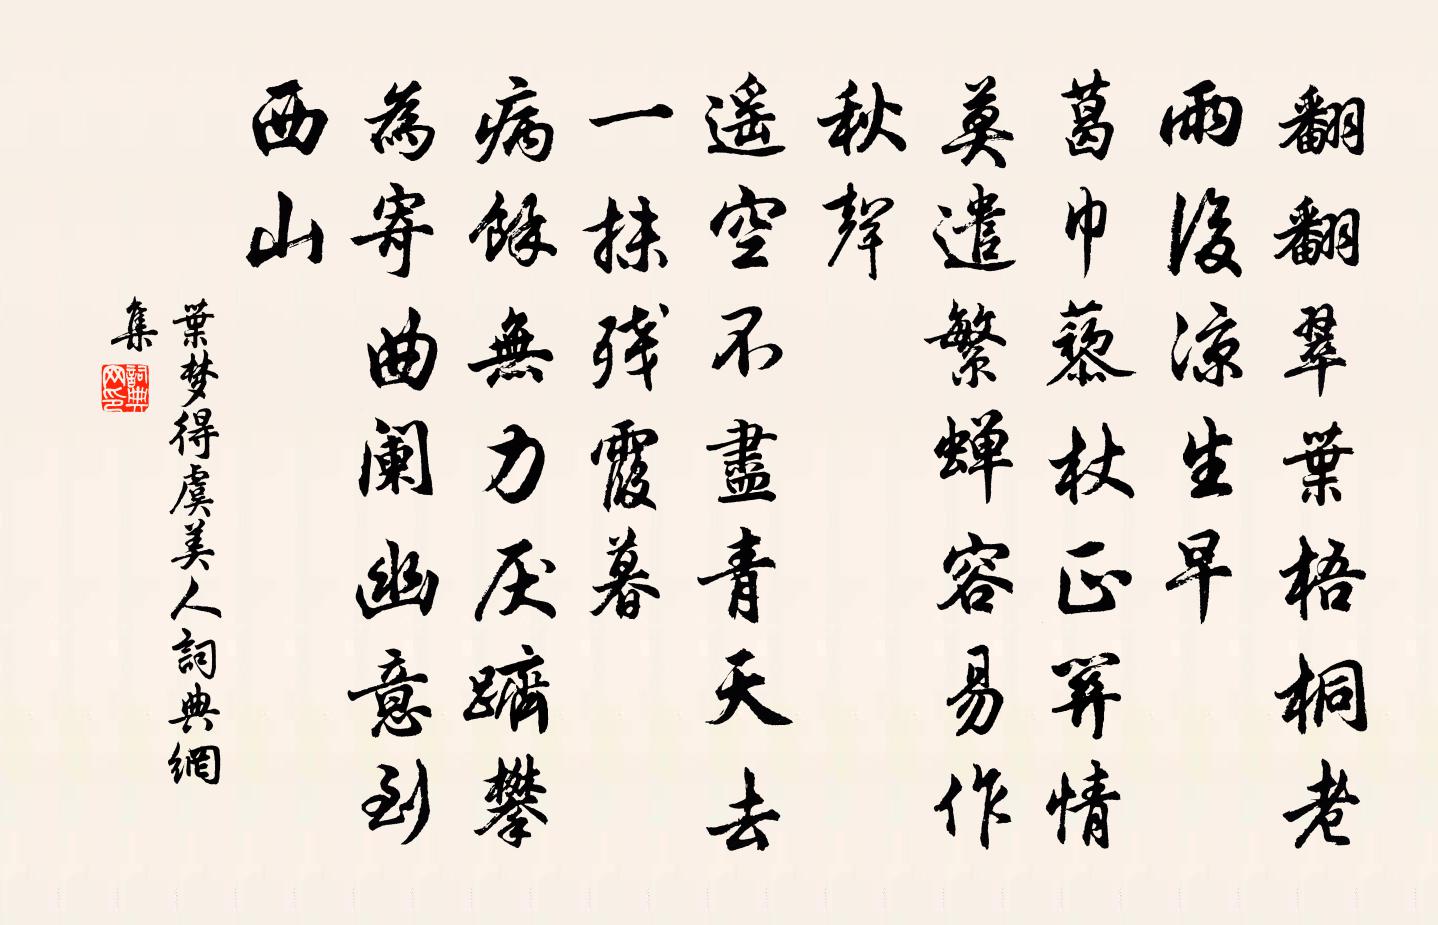 翻翻翠葉梧桐老
雨後涼生早
葛巾藜杖正關情
莫遣繁蝉容易作
秋聲
遥空不盡青天去
一抹残霞暮
病餘無力厌躋攀
為寄曲阑幽意到
西山
葉梦得虞美人詞典網
集
詞典網印